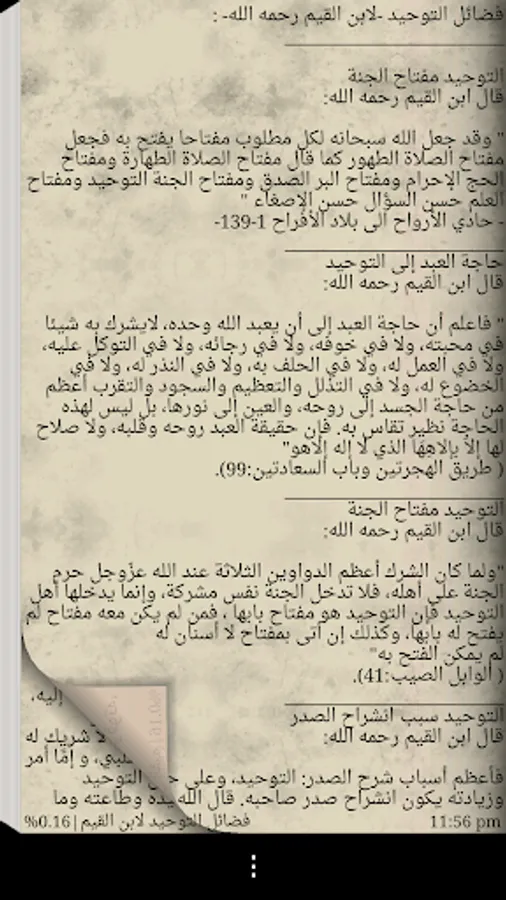 فضائل التوحيد -لابن القيم رحمه الله- :
التوحيد مفتاح الجنة
قال ابن القيم رحمه الله:
" وقد جعل الله سبحانه لكل مطلوب مفتاحا يفتح به فجعل
مفتاح الصلاة الطهور كما قال مفتاح الصلاة الطهارة ومفتاح
الحج الإحرام ومفتاح البر الصدق ومفتاح الجنة التوحيد ومفتاح
العلم حسن السؤال حسن الإصغاء "
- حادي الأرواح الى بلاد الأفراح 1-139-
حاجة العبد إلى التوحيد
قال ابن القيم رحمه الله:
" فاعلم أن حاجة العبد إلى أن يعبد الله وحده، لايشرك به شيئا
في محبته، ولا في خوفه، ولا في رجائه، ولا في التوكل عليه،
ولا في العمل له، ولا في الحلف به، ولا في النذر له، ولا في
الخضوع له، ولا في التذلل والتعظيم والسجود والتقرب أعظم
من حاجة الجسد إلى روحه، والعين إلى نورها، بل ليس لهذه
الحاجة نظير تقاس به. فإن حقيقة العبد روحه وقلبه، ولا صلاح
لها إلا بالاهها الذي لا إله إلاهو"
( طريق الهجرتين وباب السعادتين:99).
التوحيد مفتاح الجنة
قال ابن القيم رحمه الله:
"ولما كان الشرك أعظم الدواوين الثلاثة عند الله عزّوجل حرم
الجنة على أهله، فلا تدخل الجنة نفس مشركة، وإنما يدخلها أهل
التوحيد فإن التوحيد هو مفتاح بابها ، فمن لم يكن معه مفتاح لم
يفتح له بابها، وكذلك إن أتى بمفتاح لا أسنان له
لم يمكن الفتح به"
( الوابل الصيب:41).
إليه،
التوحيد سبب انشراح الصدر
قال ابن القيم رحمه الله:
لا شريك له
و إمّا أمر
فأعظم أسباب شرح الصدر: التوحيد، وعلى التوحيد
وزيادته يكون انشراح صدر صاحبه. قال الله وطاعته وما
فضائل التوحيد لابن القيم|%0.16
11:56 pm